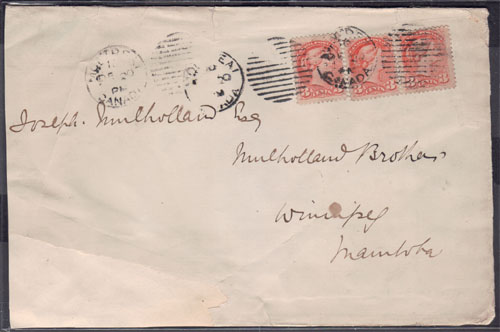 CANADA
CANADA
Joseph Mulholland Esq
Mulholland Brothers
Winnipeg
Manitoba